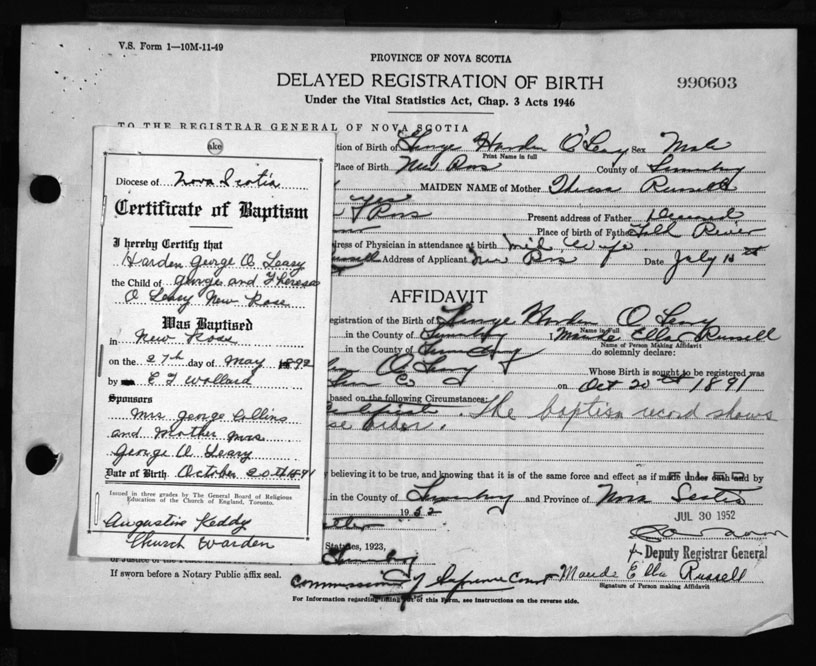 V.S. Form 1—10M-11-49
PROVINCE OF NOVA SCOTIA
DELAYED REGISTRATION OF BIRTH
990603
Under the Vital Statistics Act, Chap. 3 Acts 1946
TO THE REGISTRAR GENERAL OF NOVA SCOTIA
tion of Birth of George Harden O'Leary Sex Male
Print Name in full
Place of Birth New Ross County of Lunenburg
MAIDEN NAME of Mother Theresa Russell
yes
Ross Present address of Father Deceased
Place of birth of Father Fall River
ress of Physician in attendance at birth mid wife
Russell Address of Applicant New Ross Date July 10th
AFFIDAVIT
egistration of the Birth of George Harden O Leary
Name in Full
in the County of Lunenburg Maude Ella Russell
Name of Person Making Affidavit
in the County of Lunenburg do solemnly declare:
O Leary Whose Birth is sought to be registered was
Lun Co on Oct 20th 1891
based on the following Circumstances:
The baptism record shows
se order.
y believing it to be true, and knowing that it is of the same force and effect as if made under oath and by
in the County of Lunenburg and Province of Nova Scotia
1952
JUL 30 1952
Statutes, 1923,
Deputy Registrar General
If sworn before a Notary Public affix seal.
Commissioner of Supreme Court Maude Ella Russell
Signature of Person making Affidavit
For Information regarding filling out of this Form, see Instructions on the reverse side.
ake
Diocese of Nova Scotia
Certificate of Baptism
I hereby Certify that
Harden George O Leary
the Child of George and Theresa
O Leary New Ross
Was Baptised
in New Ross
on the 27th day of May 1892
by E T Wollard
Sponsors
Mrs George Collins
and Mother Mrs
George O Leary
Date of Birth October 20th 1891
Issued in three grades by The General Board of Religious
Education of the Church of England, Toronto.
Augustine Keddy
Church Warden